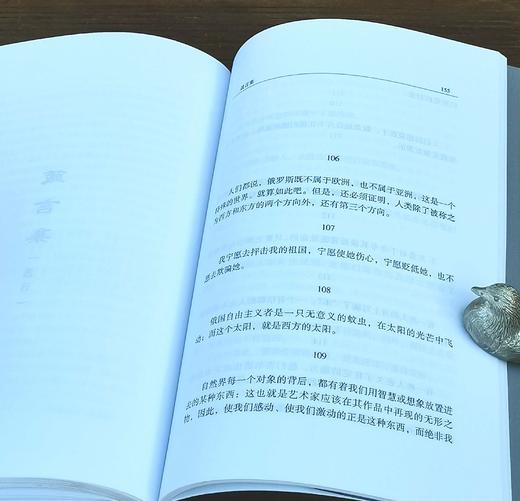 箴言集
155
106
人们都说,俄罗斯既不属于欧洲,也不属于亚洲,这是一个
特殊的世界。就算如此吧。但是,还必须证明,人类除了被称之
为西方和东方的两个方向外,还有第三个方向。
107
我宁愿去抨击我的祖国,宁愿使她伤心,宁愿贬低她,也不
愿去欺骗她。
108
俄国自由主义者是一只无意义的蚊虫,在太阳的光芒中飞
动;而这个太阳,就是西方的太阳。
109
自然界每一个对象的背后,都有着我们用智慧或想象放置进
去的某种东西;这也就是艺术家应该在其作品中再现的无形之
物,因此,使我们感动、使我们激动的正是这种东西,而绝非我